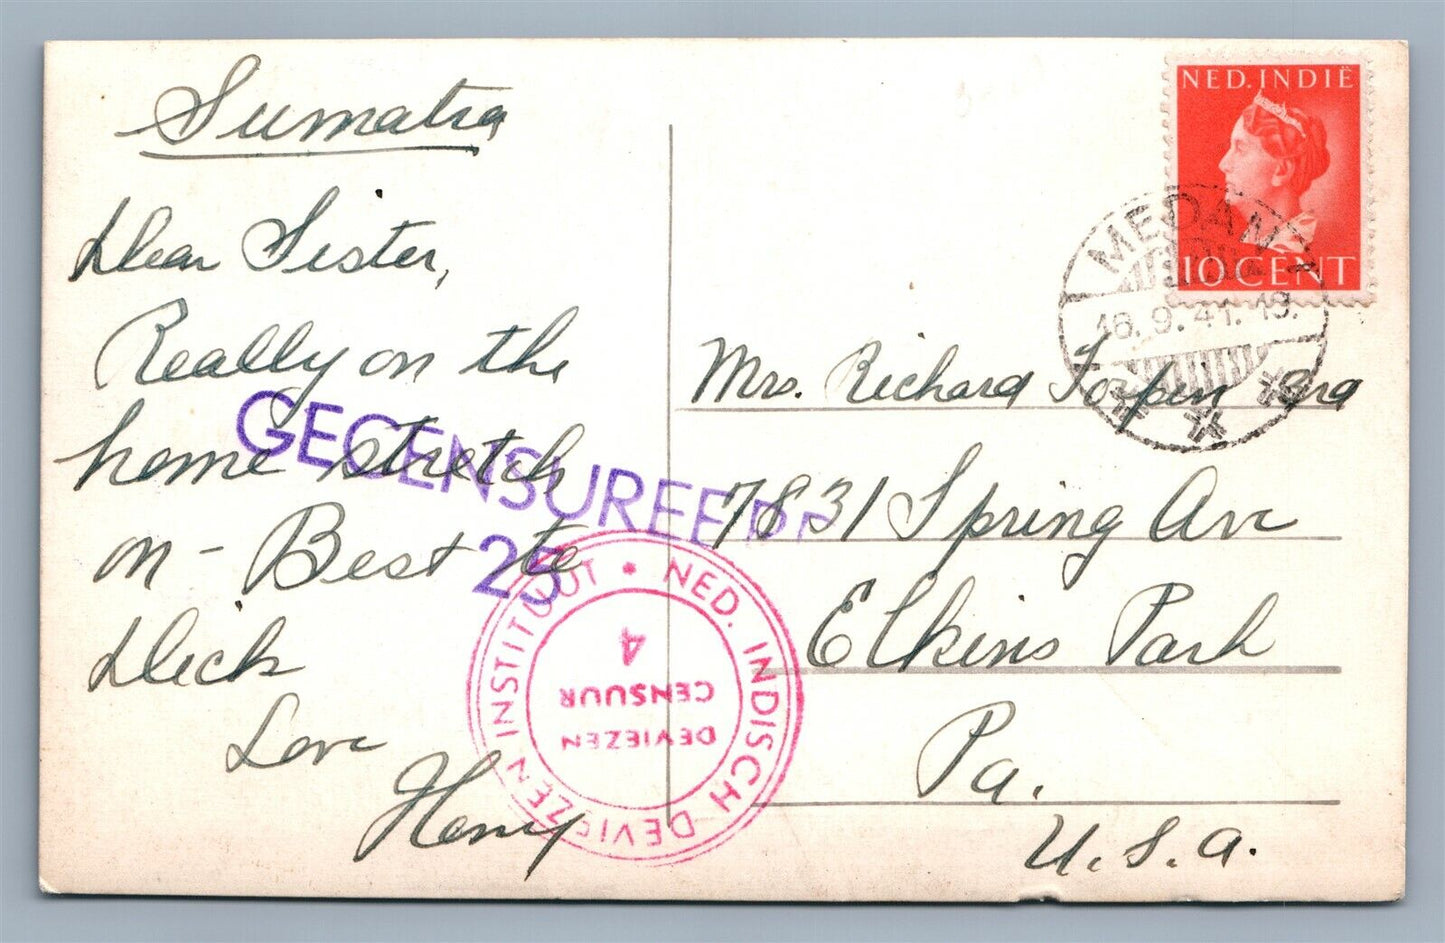 Sumatra
Dear Sister,
Really on the
home stretch
on - Best to
Dick
Love
Henry
NED. INDIË
10 CENT
MEDAN
18.9.41.19.
Mrs. Richard 3rd
7831 Spring Ave
Elkins Park
Pa.
U.S.A.
GECENSUREERD
25
NED. INDISCH DEVIEZEN INSTITUUT
DEVIEZEN
CENSUUR
4